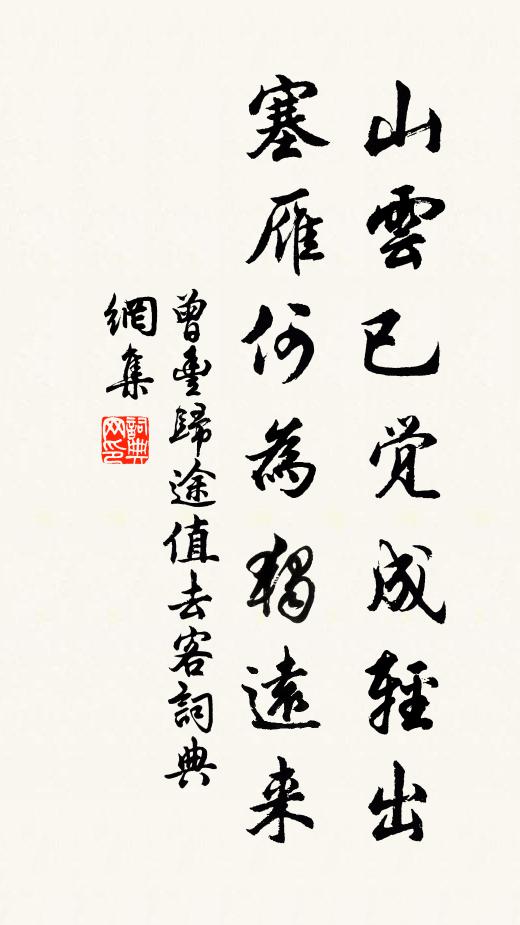 山雲已覚成輕出
塞雁何為獨遠来
曾豊歸途值去客詞典
網集
詞典
网印